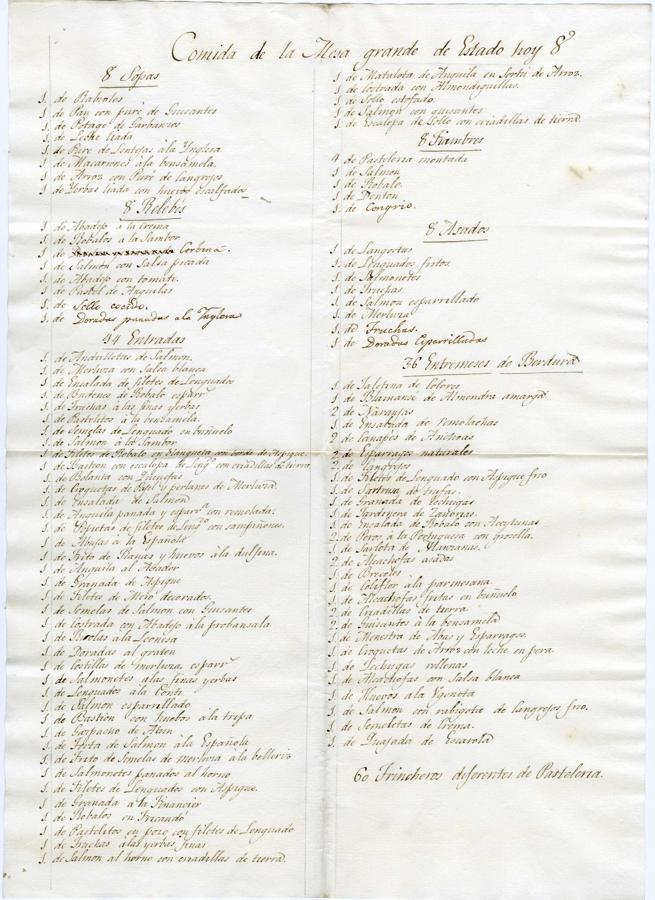 Comida de la Mesa grande de Estado hoy 8º
8 Sopas
1. de Rabioles
1. de Pan con puré de Guisantes
1. de Potage de Garbanzos
1. de Leche liada
1. de Pure de Lentejas à la Ynglesa
1. de Macarrones à la bensamela.
1. de Arroz con Puré de Cangrejos
1. de Yerbas liada con huevos escalfados
8 Relebés
1. de Abadejo à la crema
1. de Robalos à la Sambor
1. de Corbina.
1. de Salmon con Salsa picada
1. de Abadejo con tomate.
1. de Pastel de Anguilas
1. de Sollo cocido.
1. de Doradas panadas a la Ynglesa
44 Entradas
1. de Andulletas de Salmon.
1. de Merluza con Salsa blanca
1. de Ensalada de filetes de Lenguados
1. de Budenes de Robalo esparr
1. de Truchas à las finas yerbas
1. de Pastelitos à la bensamela.
1. de Semelas de Lenguado en buñuelo
1. de Salmon à la Sambor
1. de Filetes de Robalo en blanqueta con borde de Aspique.
1. de Bastion con escalopa de Leng.º con criadillas de tierra
1. de Bolanta con
1. de Croquetas de y perlanes de Merluza.
1. de Ensalada de Salmon
1. de Anguila panada y esparr.ª con remolada:
1. de Popietas de filetes de Leng.do con sampiñones.
1. de Abujas à la Española
1. de Frito de Ranas y huevos à la
1. de Anguila al Asador
1. de Granada de Aspique
1. de Filetes de Mero decorados.
1. de Semelas de Salmon con Guisantes
1. de Costrada con Abadejo à la probansala
1. de à la Leonesa
1. de Doradas al graten
1. de Costillas de merluza esparr.s
1. de Salmonetes a las finas yerbas
1. de Lenguados à la Conti
1. de Salmon esparrillado
1. de Bastion con huebos à la tripa
1. de Gazpacho de Aten
1. de Torta de Salmon à la Española
1. de Frito de Semelas de merluza à la
1. de Salmonetes panados al horno
1. de Filetes de Lenguados con Aspique.
1. de Granada à la Financier
1. de Robalos en Fricandó
1. de Pastelitos en pozo con filetes de Lenguado
1. de Truchas à las yerbas finas
1. de Salmon al horno con criadillas de tierra
1. de Matalota de Anguila en Sortú de Arroz.
1. de Costrada con Almondiguillas.
1. de Sollo estofado.
1. de Salmon con guisantes
1. de Escalopa de Sollo con criadillas de tierra
8 Fiambres
4 de Pasteleria montada
1 de Salmon
1 de Robalo.
1. de Denton
1. de Congrio.
8 Asados
1 de Langostas
1 de Lenguados fritos.
1 de Salmonetes
1 de Truchas
1 de Salmon esparrillado
1 de Merluza
1. de Truchas.
1. de Doradas Esparrilladas
36 Entremeses de Berdura
1. de Jaletina de Colores
1. de Blamansé de Almendra amarga
2 de Naranjas
1. de Ensalada de remolachas
2 de Canapés de Anchoas
2 de Esparragos naturales
2 de Cangrejos
1 de Filetes de Lenguado con Aspique frio
1. de Sartrusa de trufas.
1. de Granada de Lechugas
1. de Jardinera de Zanorias.
1. de Ensalada de Robalo con Aceytunas
2. de Peros à la Portuguesa con Grosella.
1. de Sarlota de Manzanas.
2 de Alcachofas asadas
1 de Brecoles
1 de Coliflor à la parmesana
1. de Alcachofas fritas en buñuelo
2. de Criadillas de tierra
2. de Guisantes à la bensamela
1. de Menestra de Abas y Esparragos.
1. de Croquetas de Arroz con leche en pera.
1. de Lechugas rellenas
1. de Alcachofas con Salsa blanca
1. de Huevos a la
1. de Salmon con rabigote de Cangrejos frio.
1. de Semoletas de Crema.
1. de Quajada de Escarola
60 Trincheros diferentes de Pasteleria.